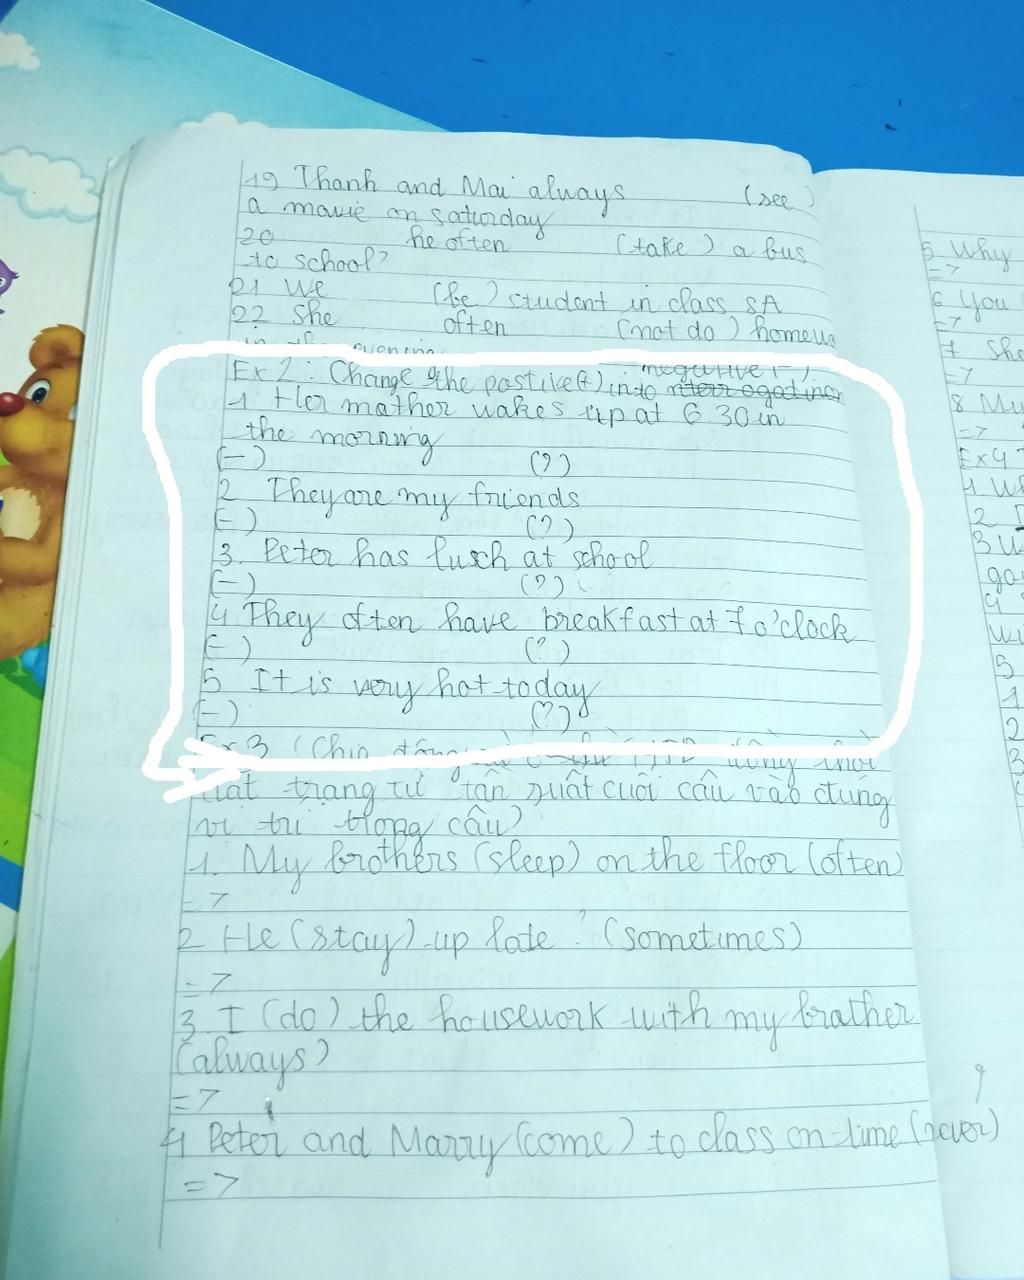 19 Thanh and Mai always (see)
a mavie on saturday
20 he often (take) a bus
to school?
21 we (be) student in class 8A
22 She often (not do) homewo
in the evening
Ex 2: Change the postive(+) into negative (-),
1. Her mather wakes up at 6.30 in
the morning
(-) (?)
2 They are my friends
(-) (?)
3. Peter has lusch at school
(-) (?)
4 They often have breakfast at 7 o'clock
(-) (?)
5 It is very hot today
(-) (?)
Ex 3 (Chia động
trạng từ tần xuất cuối câu vào đúng
vị trí trong câu)
1. My brothers (sleep) on the floor (often)
=>
2 He (stay) up late? (sometimes)
=>
3. I (do) the housework with my brather
(always)
=>
4 Peter and Marry (come) to class on-time (never)
=>
5 Why
=>
6 You
=>
7 She
=>
8 Mu
=>
Ex4
1 W
2
3 W
4
5
1
2
3